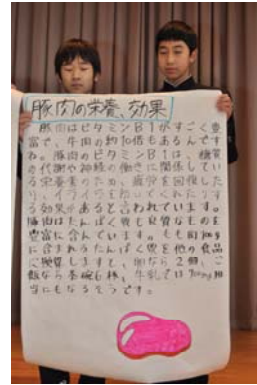 豚肉の栄養、効果
豚肉はビタミンB1がすごく豊
富で、牛肉の約10倍もあるんです
ね。豚肉のビタミンB1は、糖質
の代謝や神経の働きに関係してい
る栄養素のため、疲労を回復した
り、イライラを防いでくれたりす
る効果があると言われています。
豚肉はたんぱく質も良質なものを
豊富に含んでいます。もも肉100g
に含まれるたんぱく質を他の食品
に換算しますと、卵なら2個、ご
飯なら茶碗6杯、牛乳では700mg相
当にもなるそうです。